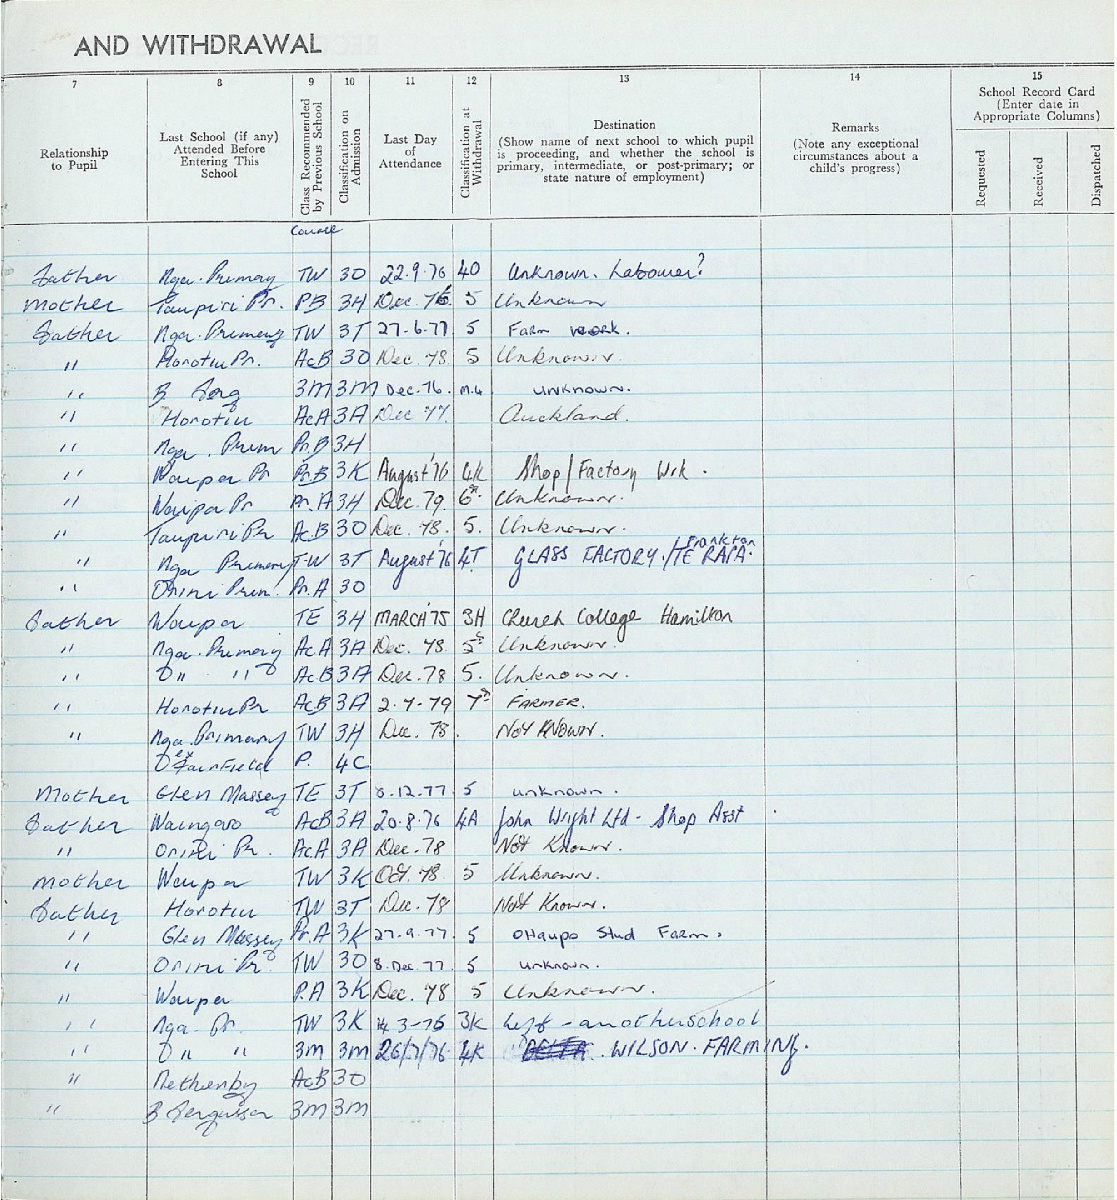 AND WITHDRAWAL
7 8 9 10 11 12 13 14 15
Relationship to Pupil
Last School (if any) Attended Before Entering This School
Class Recommended by Previous School
Classification on Admission
Last Day of Attendance
Classification at Withdrawal
Destination
(Show name of next school to which pupil is proceeding, and whether the school is primary, intermediate, or post-primary; or state nature of employment)
Remarks
(Note any exceptional circumstances about a child's progress)
School Record Card
(Enter date in Appropriate Columns)
Requested
Received
Dispatched
Course
Father Nga. Primary TW 3O 22.9.76 4O Unknown. Labourer?
Mother Taupiri Pr. PB 3H Dec 76 5 Unknown
Father Nga. Primary TW 3T 27-6-77 5 Farm work.
" Horotiu Pr. AcB 3O Dec. 78 5 Unknown.
" B Ferg 3M 3M Dec. 76. unknown.
" Horotiu AcA 3A Dec 77. Auckland.
" Nga. Prim Pr.B 3H
" Waipa Pr Pr.B 3K August '76 4K Shop/Factory Wk.
" Waipa Pr Pr.A 3H Dec. 79. 6th. Unknown.
" Taupiri Pr AcB 3O Dec. 78. 5. Unknown.
" Nga Primary TW 3T August '76 4T GLASS FACTORY / TE RAPA. Frankton
" Orini Prim. Pr.A 3O
Father Waipa TE 3H MARCH '75 3H Church College Hamilton
" Nga. Primary AcA 3A Dec. 78. 5 Unknown.
" " " AcB 3A Dec. 78 5. Unknown.
" Horotiu Pr AcB 3A 2-7-79 7th FARMER.
" Nga. Primary TW 3H Dec. 78. NOT KNOWN.
Fairfield P. 4C
Mother Glen Massey TE 3T 8.12.77. 5 unknown.
Father Waingaro AcB 3A 20.8.76 4A John Wright Ltd - Shop Asst
" Orini Pr. AcA 3A Dec. 78 Not Known.
Mother Waipa TW 3K Oct. 78 5 Unknown.
Father Horotiu TW 3T Dec. 78 Not Known.
" Glen Massey Pr.A 3K 27.9.77. 5 Ohaupo Stud Farm.
" Orini Pr TW 3O 8. Dec. 77. 5 unknown.
" Waipa P.A 3K Dec. 78 5 Unknown.
" Nga. Pr. TW 3K 3-76 3K Left - another school
" " " 3M 3M 26/7/76 4K WILSON. FARMING.
" Netherby AcB 3O
" B Ferguson 3M 3M